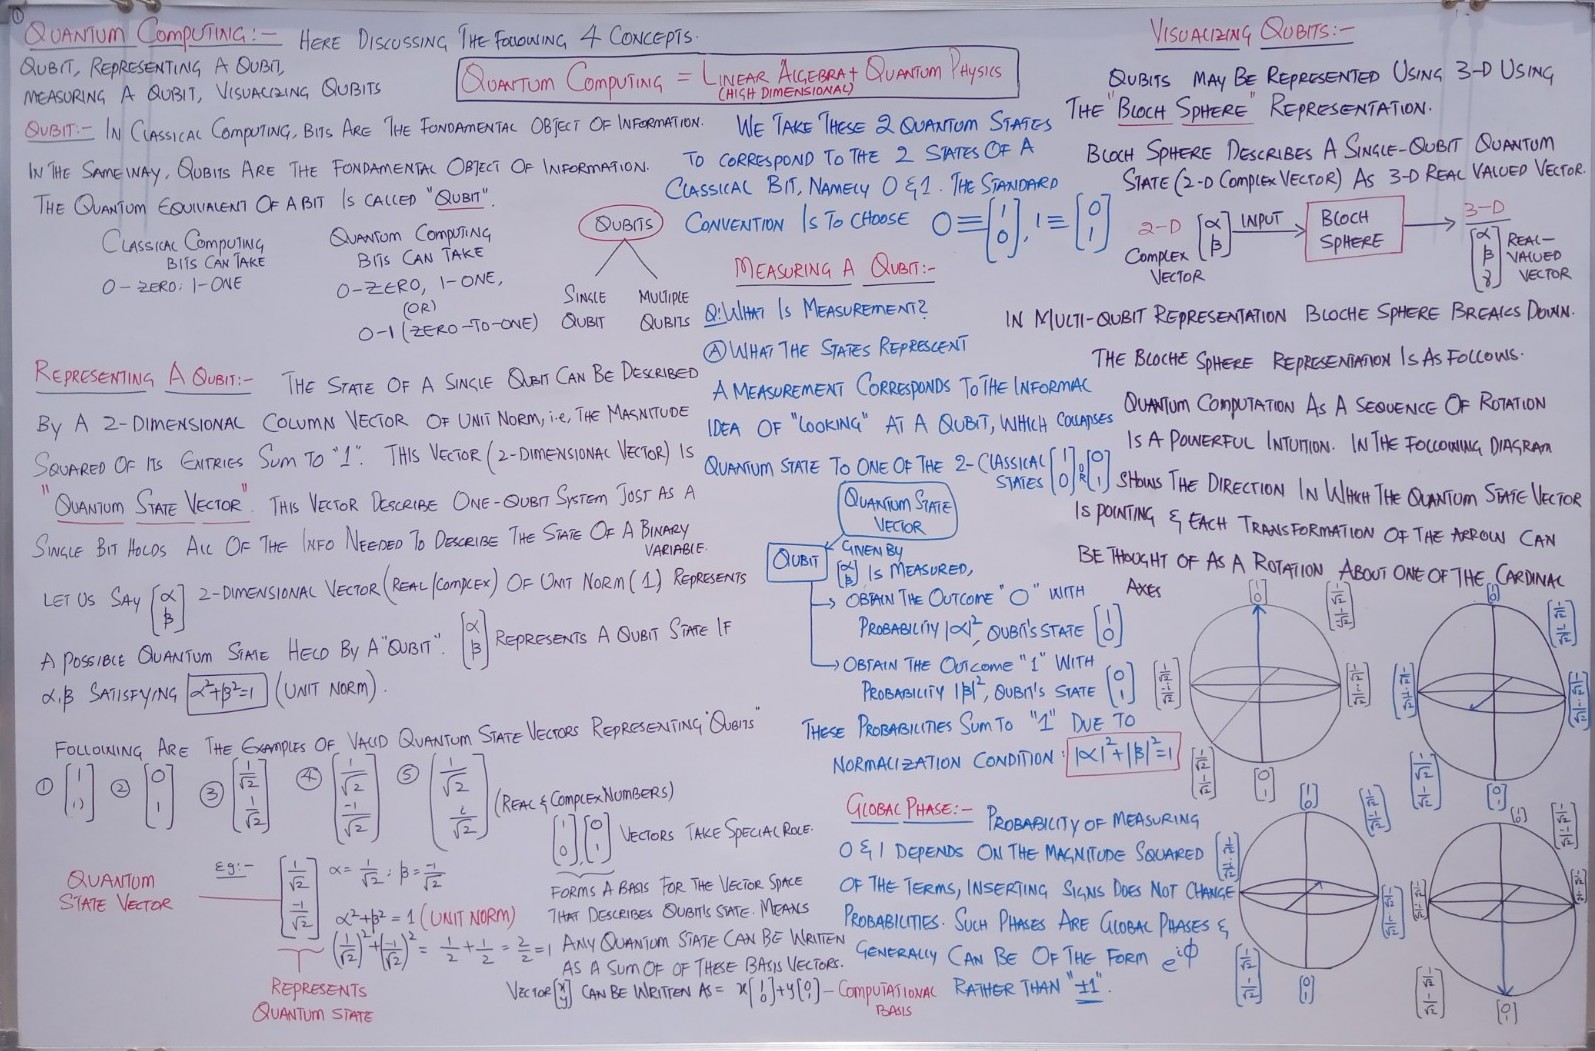 ①
QUANTUM COMPUTING:- HERE DISCUSSING THE FOLLOWING 4 CONCEPTS.
QUBIT, REPRESENTING A QUBIT,
MEASURING A QUBIT, VISUALIZING QUBITS
QUANTUM COMPUTING = LINEAR ALGEBRA + QUANTUM PHYSICS
(HIGH DIMENSIONAL)
QUBIT:- IN CLASSICAL COMPUTING, BITS ARE THE FONDAMENTAL OBJECT OF INFORMATION.
IN THE SAME WAY, QUBITS ARE THE FONDAMENTAL OBJECT OF INFORMATION.
THE QUANTUM EQUIVALENT OF A BIT IS CALLED "QUBIT".
CLASSICAL COMPUTING
BITS CAN TAKE
0-ZERO; 1-ONE
QUANTUM COMPUTING
BITS CAN TAKE
0-ZERO, 1-ONE,
(OR)
0-1 (ZERO-TO-ONE)
QUBITS
SINGLE QUBIT
MULTIPLE QUBITS
REPRESENTING A QUBIT:- THE STATE OF A SINGLE QUBIT CAN BE DESCRIBED
BY A 2-DIMENSIONAL COLUMN VECTOR OF UNIT NORM, i.e, THE MAGNITUDE
SQUARED OF ITS ENTRIES SUM TO "1". THIS VECTOR (2-DIMENSIONAL VECTOR) IS
"QUANTUM STATE VECTOR". THIS VECTOR DESCRIBE ONE-QUBIT SYSTEM JUST AS A
SINGLE BIT HOLDS ALL OF THE INFO NEEDED TO DESCRIBE THE STATE OF A BINARY
VARIABLE.
LET US SAY [α β] 2-DIMENSIONAL VECTOR (REAL/COMPLEX) OF UNIT NORM (1) REPRESENTS
A POSSIBLE QUANTUM STATE HELD BY A "QUBIT". [α β] REPRESENTS A QUBIT STATE IF
α,β SATISFYING α²+β²=1 (UNIT NORM).
FOLLOWING ARE THE EXAMPLES OF VALID QUANTUM STATE VECTORS REPRESENTING "QUBITS"
① ② [0 1] ③ [1/√2 1/√2] ④ [1/√2 -1/√2] ⑤ [1/√2 i/√2] (REAL & COMPLEX NUMBERS)
[1 0], [0 1] VECTORS TAKE SPECIAL ROLE.
FORMS A BASIS FOR THE VECTOR SPACE
THAT DESCRIBES QUBIT'S STATE. MEANS
ANY QUANTUM STATE CAN BE WRITTEN
AS A SUM OF OF THESE BASIS VECTORS.
VECTOR [x y] CAN BE WRITTEN AS = x[1 0]+y[0 1] - COMPUTATIONAL
BASIS
QUANTUM
STATE VECTOR
Eg:- [1/√2 -1/√2] α=1/√2; β=-1/√2
α²+β²=1 (UNIT NORM)
(1/√2)²+(-1/√2)² = 1/2+1/2 = 2/2 = 1
REPRESENTS
QUANTUM STATE
WE TAKE THESE 2 QUANTUM STATES
TO CORRESPOND TO THE 2 STATES OF A
CLASSICAL BIT, NAMELY 0 & 1. THE STANDARD
CONVENTION IS TO CHOOSE 0≡[1 0], 1≡[0 1]
MEASURING A QUBIT:-
Q: WHAT IS MEASUREMENT?
Ⓐ WHAT THE STATES REPRESCENT
A MEASUREMENT CORRESPONDS TO THE INFORMAL
IDEA OF "LOOKING" AT A QUBIT, WHICH COLLAPSES
QUANTUM STATE TO ONE OF THE 2-CLASSICAL
STATES [1 0] OR [0 1]
QUANTUM STATE
VECTOR
QUBIT GIVEN BY
[α β] IS MEASURED,
OBTAIN THE OUTCOME "0" WITH
PROBABILITY |α|², QUBIT'S STATE [1 0]
OBTAIN THE OUTCOME "1" WITH
PROBABILITY |β|², QUBIT'S STATE [0 1]
THESE PROBABILITIES SUM TO "1" DUE TO
NORMALIZATION CONDITION: |α|²+|β|²=1
GLOBAL PHASE:- PROBABILITY OF MEASURING
0 & 1 DEPENDS ON THE MAGNITUDE SQUARED
OF THE TERMS, INSERTING SIGNS DOES NOT CHANGE
PROBABILITIES. SUCH PHASES ARE GLOBAL PHASES &
GENERALLY CAN BE OF THE FORM e^iφ
RATHER THAN "±1".
VISUALIZING QUBITS:-
QUBITS MAY BE REPRESENTED USING 3-D USING
THE "BLOCH SPHERE" REPRESENTATION.
BLOCH SPHERE DESCRIBES A SINGLE-QUBIT QUANTUM
STATE (2-D COMPLEX VECTOR) AS 3-D REAL VALUED VECTOR.
2-D COMPLEX VECTOR [α β] INPUT BLOCH SPHERE
3-D [α β γ] REAL-VALUED VECTOR
IN MULTI-QUBIT REPRESENTATION BLOCHE SPHERE BREAKS DOWN.
THE BLOCHE SPHERE REPRESENTATION IS AS FOLLOWS.
QUANTUM COMPUTATION AS A SEQUENCE OF ROTATION
IS A POWERFUL INTUITION. IN THE FOLLOWING DIAGRAM
SHOWS THE DIRECTION IN WHICH THE QUANTUM STATE VECTOR
IS POINTING & EACH TRANSFORMATION OF THE ARROW CAN
BE THOUGHT OF AS A ROTATION ABOUT ONE OF THE CARDINAL
AXES